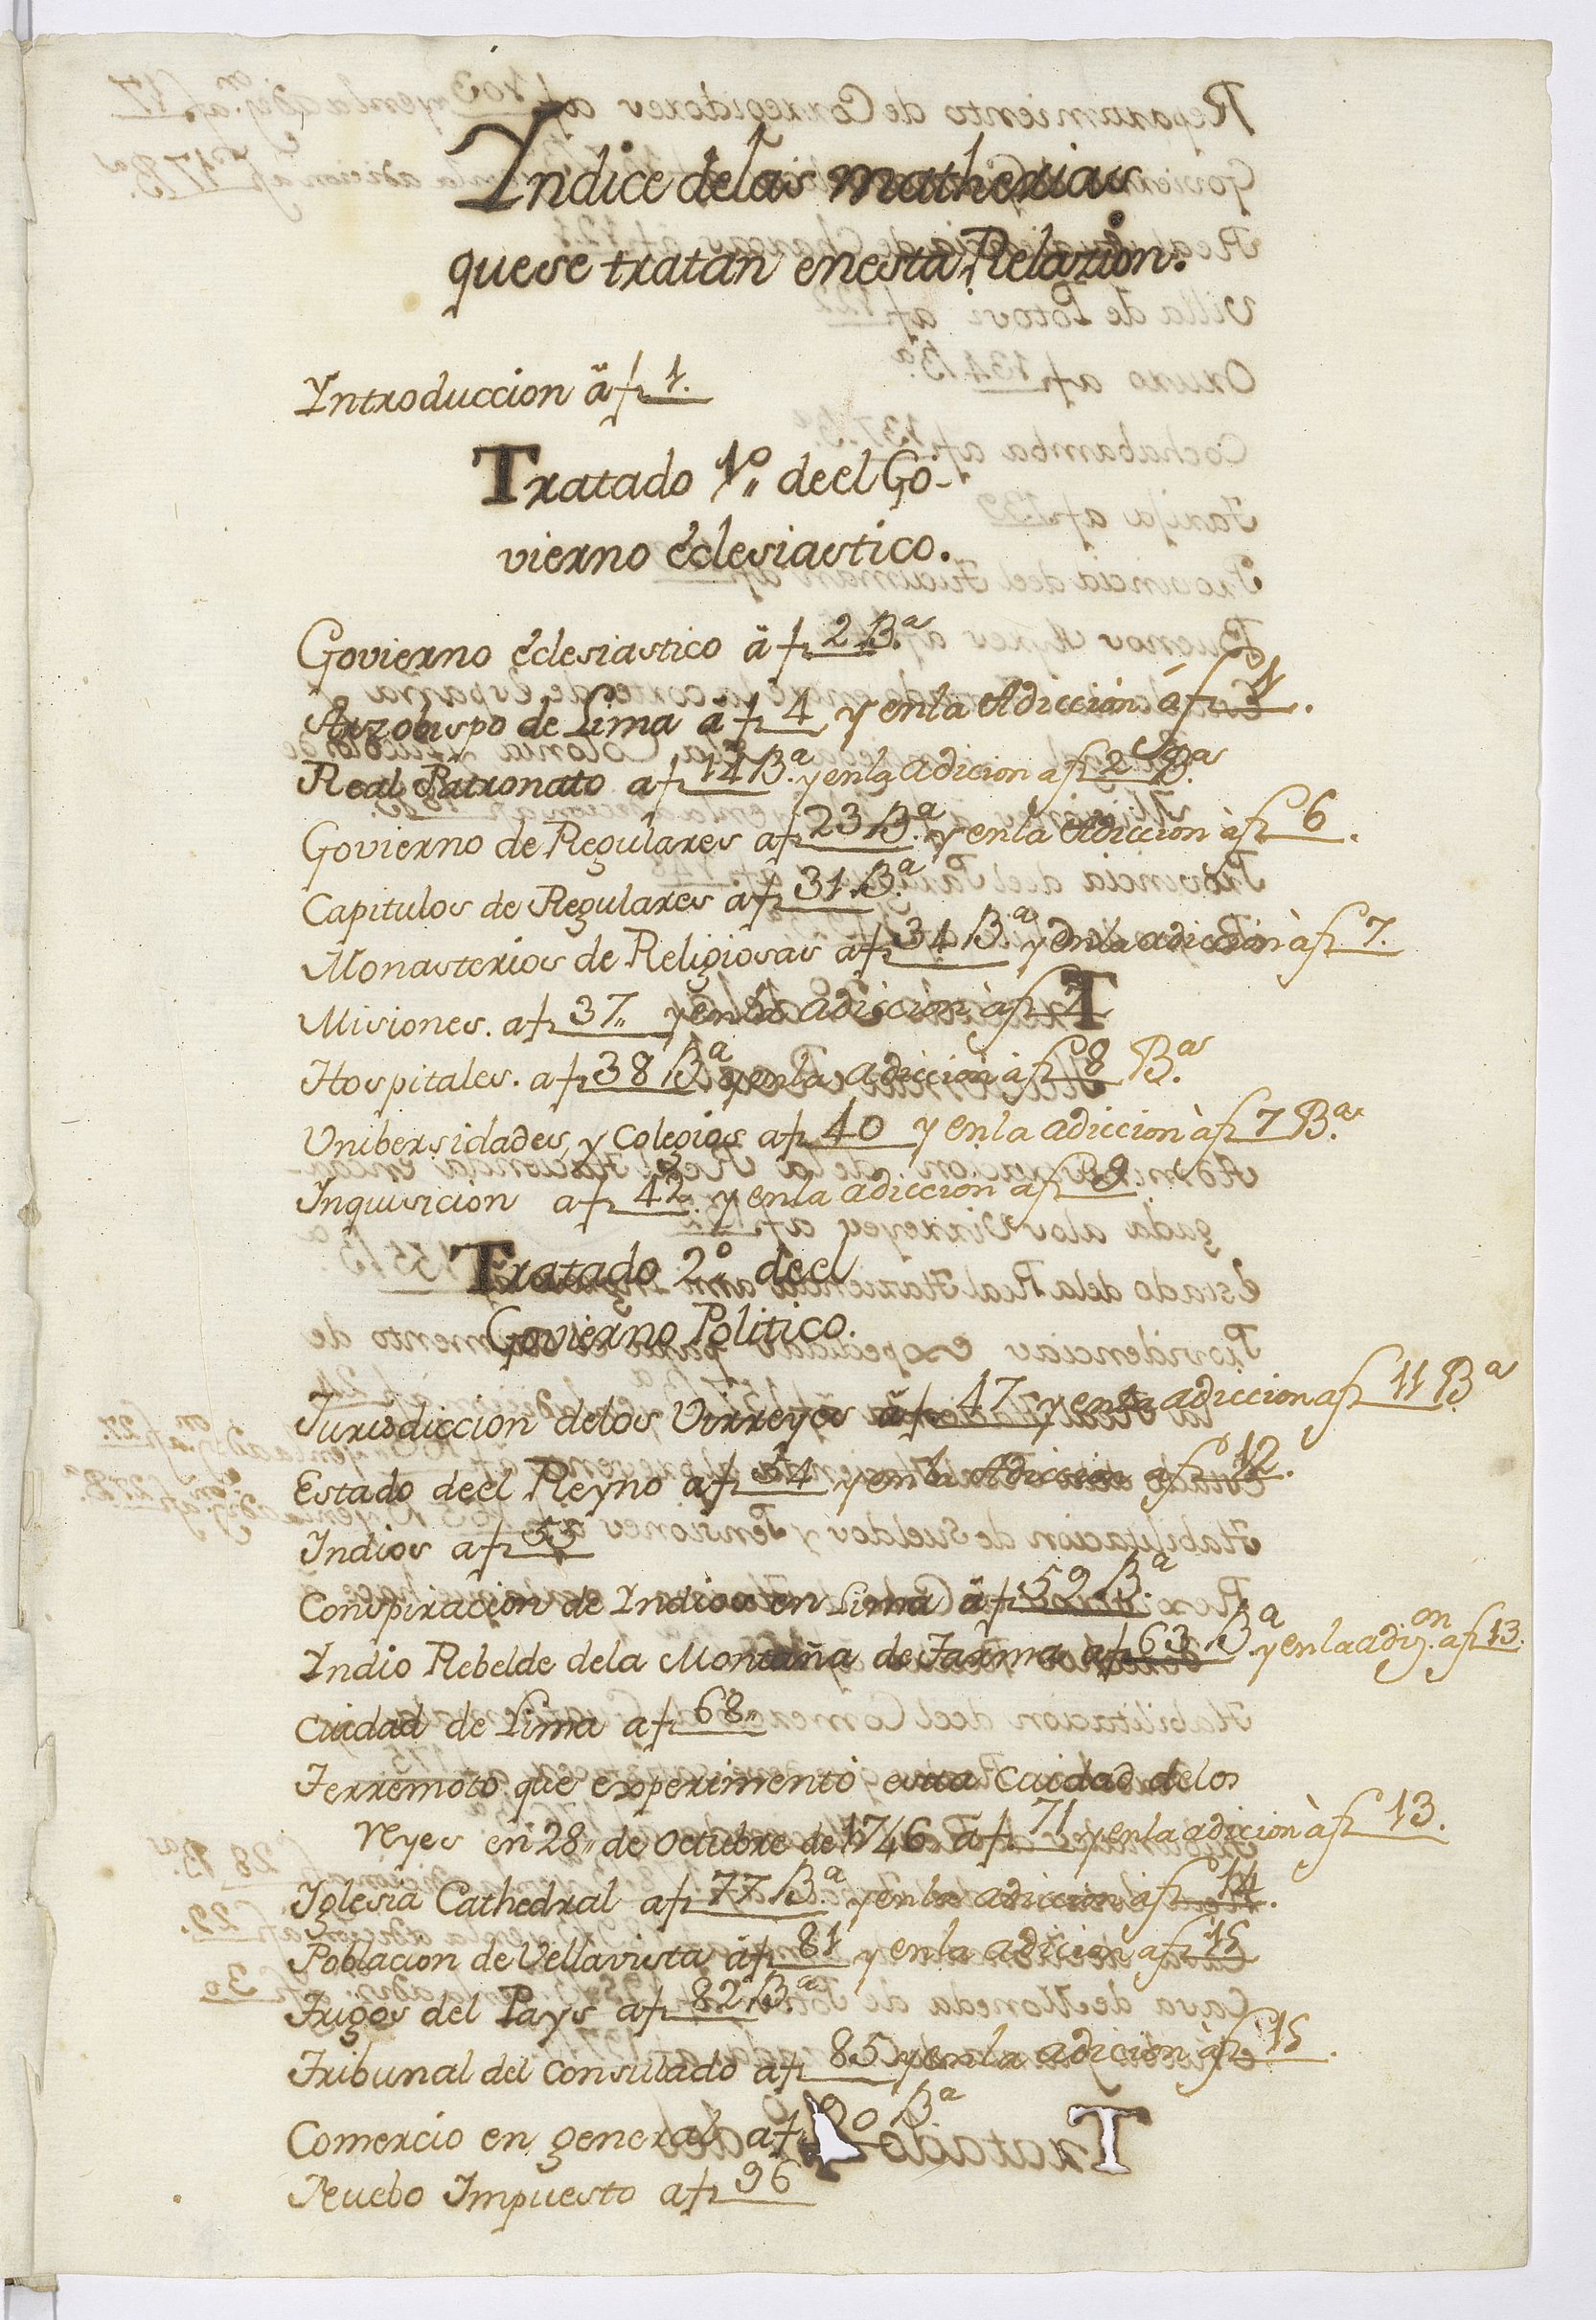 Yndice delas matherias
quese tratan enesta Relazion.
Yntroduccion â f 1.
Tratado 1º,, deel Go-
vierno eclesiastico.
Govierno eclesiastico â f 2 B.ª
Arzobispo de Lima â f 4 y enla Adiccion à f 1.
Real Patronato a f 14 B.ª y enla adicion a f 2 B.ª
Govierno de Regulares a f 23 B.ª y enla Adiccion à f 6.
Capitulos de Regulares a f 31 B.ª
Monasterios de Religiosas a f 34 B.ª y enla adiccion à f 7.
Misiones. a f 37,, y enla adiccion à f
Hospitales. a f 38 B.ª y enla adiccion à f 8 B.ª
Unibersidades, y Colegios a f 40 y enla adiccion à f 7 B.ª
Inquisicion a f 42. y enla adiccion a f 9.
Tratado 2º,, deel
Govierno Politico.
Jurisdiccion delos Virreyes â f 47 y enla adiccion a f 11 B.ª
Estado deel Reyno a f 54 y enla Adiccion a f 12.
Indios a f 55
Conspiracion de Yndios en Lima â f 59 B.ª
Yndio Rebelde dela Montaña de Tarma a f 63 B.ª y enla adiz.on a f 13.
Cuidad de Lima a f 68,,
Terremoto que experimentó esta Cuidad delos
reyes en 28,, de Octubre de 1746 a f 71 y enla adicion à f 13.
Iglesia Cathedral a f 77 B.ª y enla adiccion à f 14.
Poblacion de Vellavista a f 81 y enla adicion a f 15
Trigos del Pays a f 82 B.ª
Tribunal del Consulado a f 85 y enla adicion à f 15.
Comercio en general a f 90 B.ª
Nuebo Impuesto a f 96